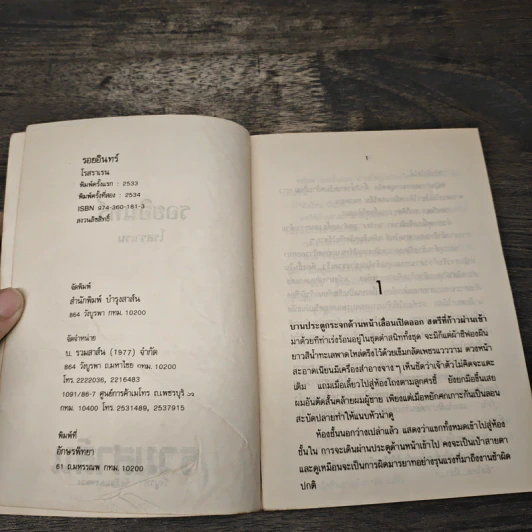 รอยอินทร์
โรสราเรน
พิมพ์ครั้งแรก : 2533
พิมพ์ครั้งที่สอง : 2534
ISBN 974-360-161-3
สงวนลิขสิทธิ์
จัดพิมพ์
สำนักพิมพ์ บำรุงสาส์น
864 วังบูรพา กทม. 10200
จัดจำหน่าย
บ. รวมสาส์น (1977) จำกัด
864 วังบูรพา ถ.มหาไชย กทม. 10200
โทร. 2222036, 2216483
1091/86-7 ศูนย์การค้าเมโทร ถ.เพชรบุรี
กทม. 10400 โทร. 2531489, 2537915
พิมพ์ที่
อักษรพิทยา
61 ถ.มหรรณพ กทม. 10200
1
บานประตูกระจกด้านหน้าเลื่อนเปิดออก สตรีที่ก้าวผ่านเข้า
มาด้วยทีท่าเร่งร้อนอยู่ในชุดดำสนิททั้งชุด จะมีก็แต่ผ้าชีฟองผืน
ยาวสีน้ำทะเลพาดไหล่ตรึงไว้ด้วยเข็มกลัดเพชรแวววาม ดวงหน้า
สะอาดเนียนมีเครื่องสำอางจาง ๆ เห็นชัดว่าเจ้าตัวไม่คิดจะแตะ
เติม แถมเมื่อเลี้ยวไปสู่ห้องโถงตามลูกศรชี้ ยังยกมือขึ้นเสย
ผมอันตัดสั้นคล้ายผมผู้ชาย เพียงแต่เมื่อหยักศกเกาะกันเป็นลอน
สะบัดปลายทำให้แนบหัวน่าดู
ห้องชั้นนอกว่างเปล่าแล้ว แสดงว่าแขกทั้งหมดเข้าไปสู่ห้อง
ชั้นใน การจะเดินผ่านประตูด้านหน้าเข้าไป คงจะเป็นเป้าสายตา
และดูเหมือนจะเป็นการผิดมารยาทอย่างรุนแรงที่มาถึงงานช้าผิด
ปกติ